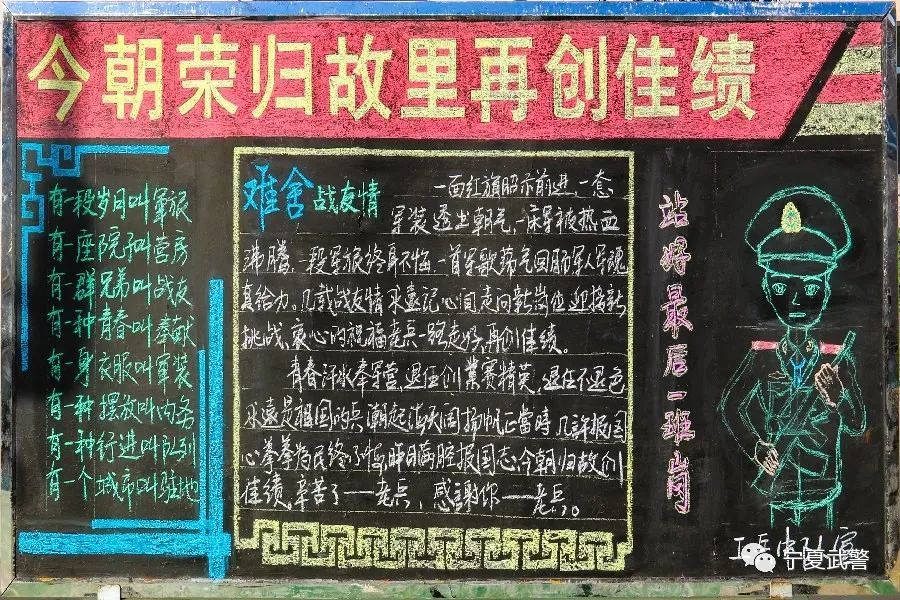 今朝荣归故里再创佳绩
有一段岁月叫军旅
有一座院子叫营房
有一群兄弟叫战友
有一种青春叫奉献
有一身衣服叫军装
有一种摆放叫内务
有一种行进叫队列
有一个城市叫驻地
难舍战友情
一面红旗昭示前进、一套
军装透出朝气、一床军被热血
沸腾、一段军旅终身不悔、一首军歌荡气回肠军人军魂
真给力。几载战友情永远记心间走向新岗位迎接新
挑战、衷心的祝福老兵一路走好,再创佳绩。
青春汗水奉军营,退伍创业赛精英,退伍不退色
永远是祖国的兵,潮起海天阔扬帆正當時,几許报国
心拳拳为民终了悔昨日满腔报国志今朝归故创
佳绩,辛苦了——老兵,感謝你——老兵。
站好最后一班岗
宁夏武警